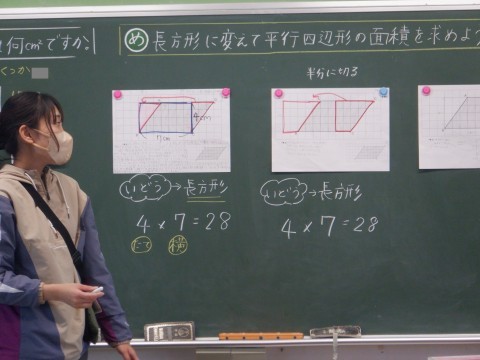 何cm²ですか。
くつか
め 長方形に変えて平行四辺形の面積を求めよう
半分に切る
4cm
7cm
いどう→長方形
4×7=28
たて 横
いどう→長方形
4×7=28